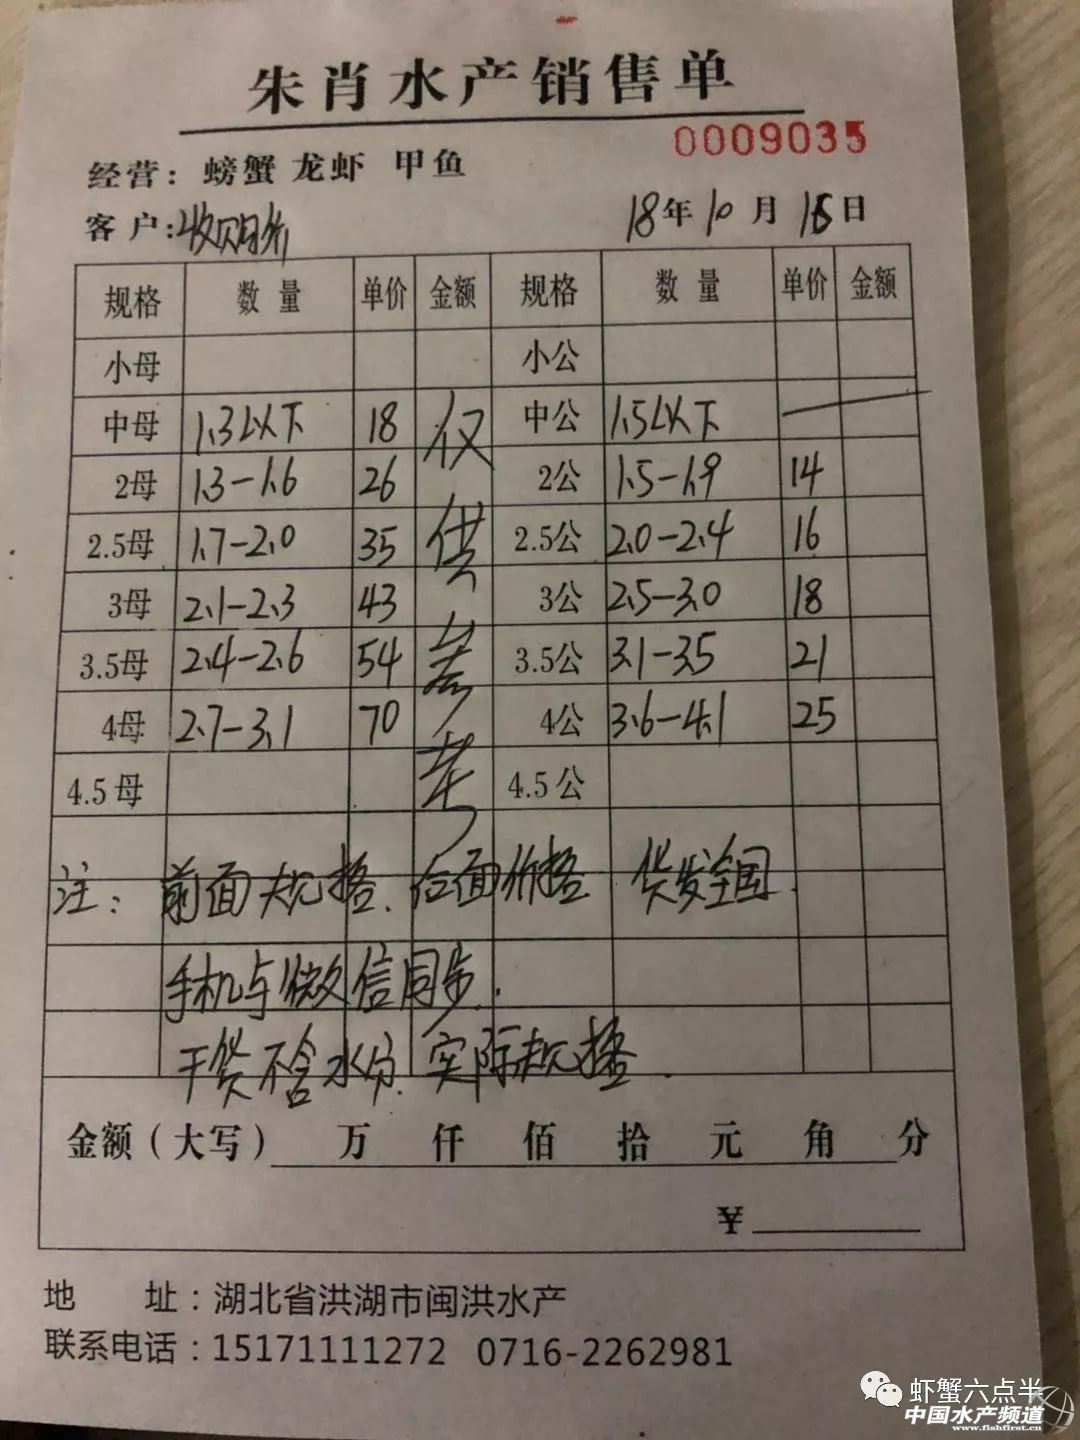 朱肖水产销售单
0009035
经营：螃蟹 龙虾 甲鱼
客户：收购价 18年10月16日
规格 数量 单价 金额 规格 数量 单价 金额
小母 小公
中母 1.3以下 18 中公 1.5以下 —
2母 1.3-1.6 26 2公 1.5-1.9 14
2.5母 1.7-2.0 35 2.5公 2.0-2.4 16
3母 2.1-2.3 43 3公 2.5-3.0 18
3.5母 2.4-2.6 54 3.5公 3.1-3.5 21
4母 2.7-3.1 70 4公 3.6-4.1 25
4.5母 4.5公
仅供参考
注：前面规格.后面价格 货发全国.
手机与微信同步.
干货不含水分.实际规格.
金额（大写） 万 仟 佰 拾 元 角 分
¥
地 址：湖北省洪湖市闽洪水产
联系电话：15171111272 0716-2262981
虾蟹六点半
中国水产频道
www.fishfirst.cn